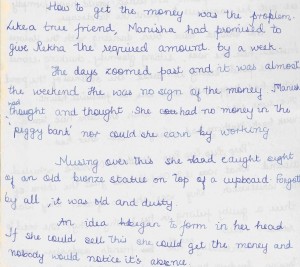 How to get the money was the problem.
Like a true friend, Manisha had promised to
give Rekha the required amount by a week.
The days zoomed past and it was almost
the weekend The was no sign of the money. Manish
had
thought and thought She had no money in the
'piggy bank' nor could she earn by working
Musing over this she caught sight
of an old bronze statue on top of a cupboard Forgott
by all, it was old and dusty.
An idea began to form in her head
If she could sell this she could get the money and
nobody would notice it's absence.